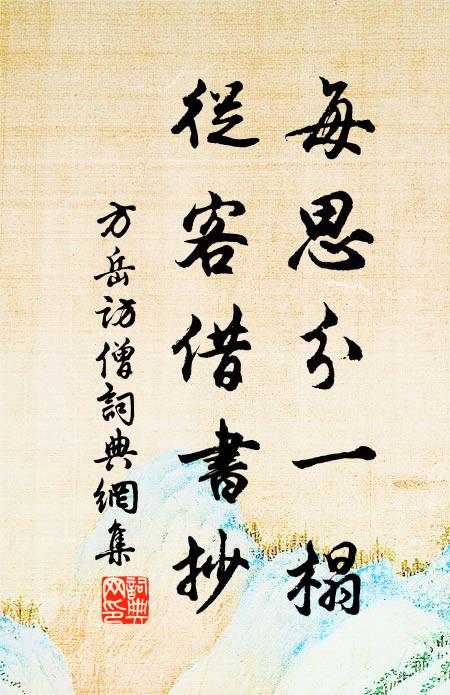 每思分一榻
從客借書抄
方岳訪僧詞典網集
詞典网印